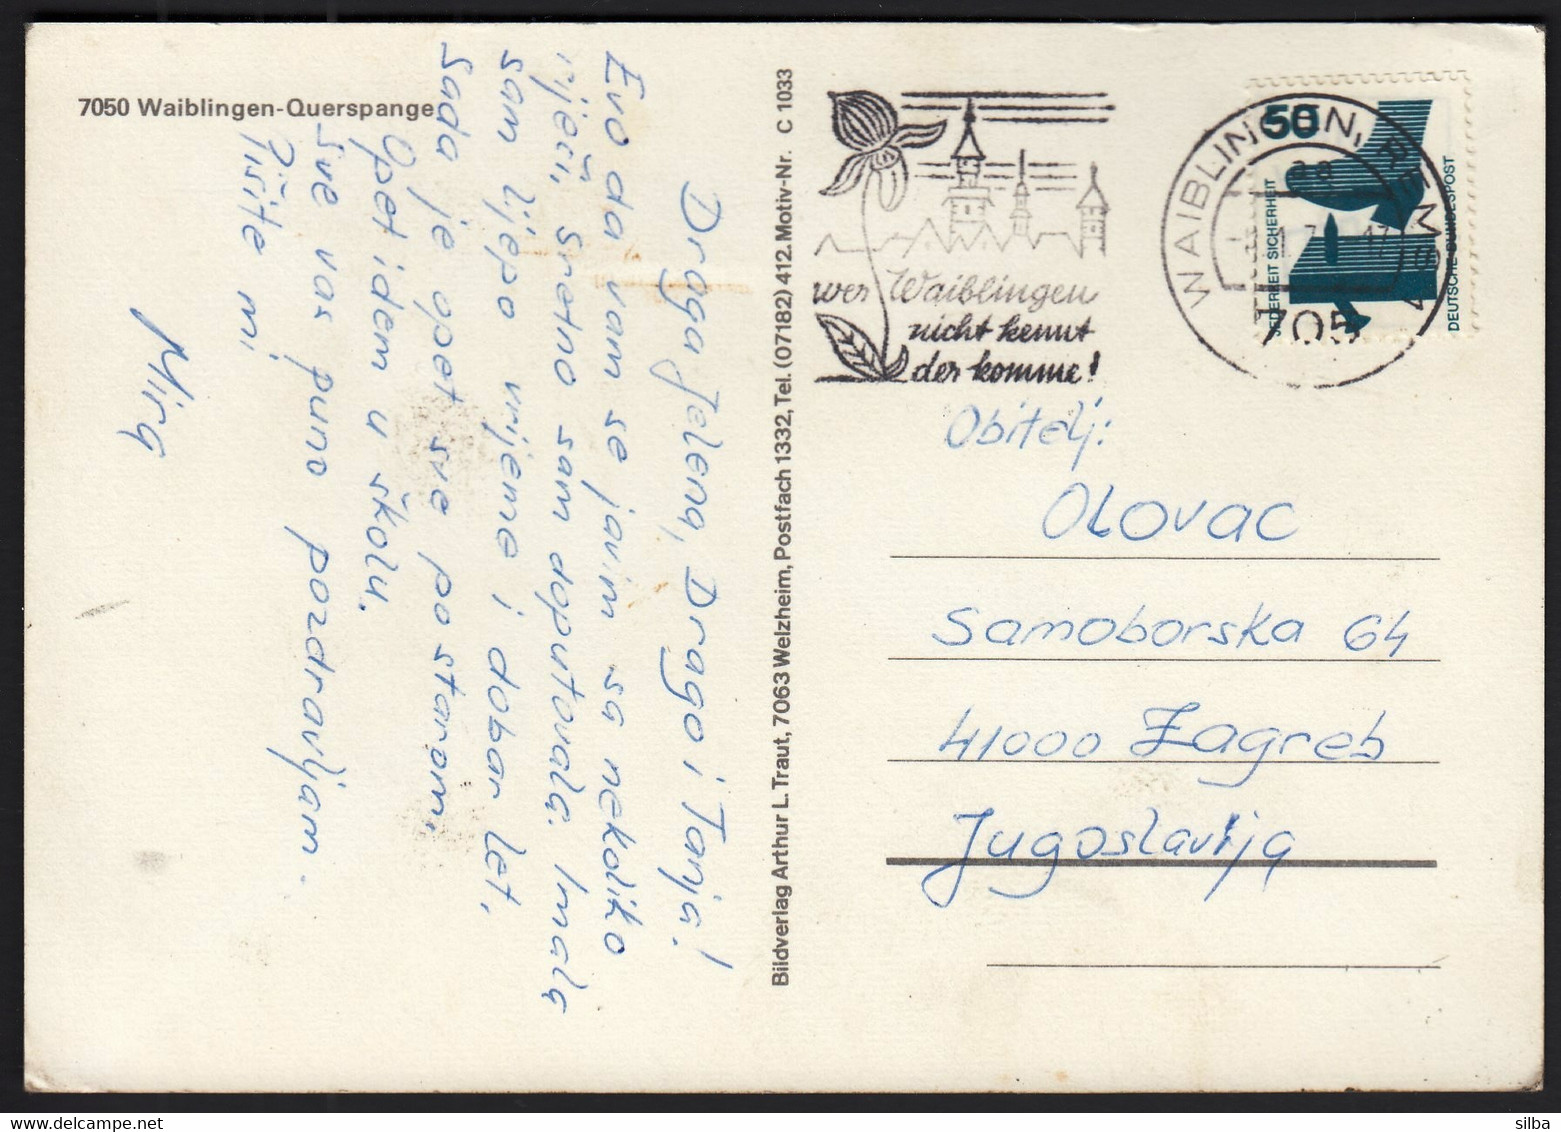 7050 Waiblingen-Querspange
Draga Jelena, Drago i Tanja!
Evo da vam se javim sa nekoliko
riječi, sretno sam doputovala. Imala
sam ljepo vrijeme i dobar let.
Sada je opet sve po starom,
Opet idem u školu.
Sve vas puno pozdravljam.
Pišite mi
Mira
Bildverlag Arthur L. Traut, 7063 Welzheim, Postfach 1332, Tel. (07182) 412. Motiv-Nr. C 1033
wer Waiblingen
nicht kennt
der komme!
WAIBLINGEN, REMS
aa
705
50
JEDERZEIT SICHERHEIT
DEUTSCHE BUNDESPOST
Obitelj:
OLOVAC
Samoborska 64
41000 Zagreb
Jugoslavija
silba